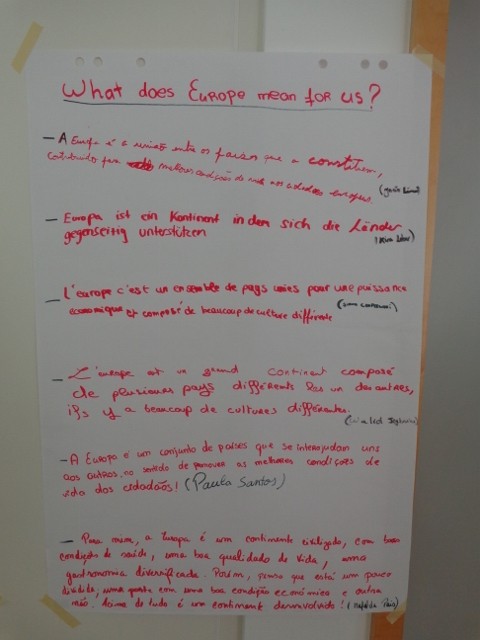 What does Europe mean for us?
- A Europa é a união entre os países que a constituem,
contribuindo para melhores condições de vida aos cidadãos europeus.
- Europa ist ein Kontinent in dem sich die Länder
gegenseitig unterstützen
- L'europe c'est un ensemble de pays unies pour une puissance
économique et composé de beaucoup de culture différente
- L'europe est un grand continent composé
de plusieurs pays différents les un des autres,
ils y a beaucoup de cultures différentes.
- A Europa é um conjunto de países que se interajudam uns
aos outros, no sentido de promover as melhores condições de
vida dos cidadãos! (Paula Santos)
- Para mim, a Europa é um continente civilizado, com boas
condições de saúde, uma boa qualidade de vida, uma
gastronomia diversificada. Porém, penso que está um pouco
dividida, uma parte com uma boa condição económica e outra
não. Acima de tudo é um continent desenvolvido! (Mafalda